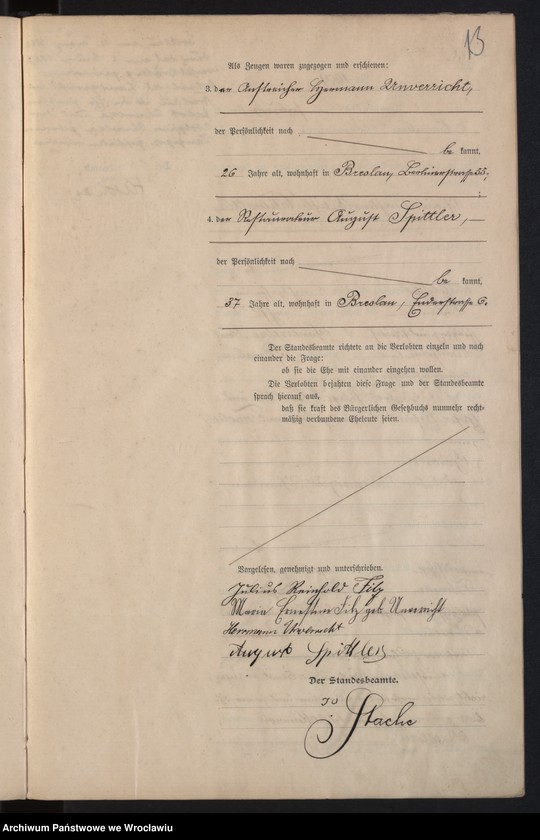 13
Als Zeugen waren zugezogen und erschienen:
3. der Anstreicher Hermann Unverricht,
der Persönlichkeit nach
be kannt,
26 Jahre alt, wohnhaft in Breslau, Berlinerstrasse 55,
;
4. der Restaurateur August Spittler,
der Persönlichkeit nach
be kannt,
37 Jahre alt, wohnhaft in Breslau, Enderstrasse 6.
Der Standesbeamte richtete an die Verlobten einzeln und nach
einander die Frage:
ob sie die Ehe mit einander eingehen wollen.
Die Verlobten bejahten diese Frage und der Standesbeamte
sprach hierauf aus,
daß sie kraft des Bürgerlichen Gesetzbuchs nunmehr recht-
mäßig verbundene Eheleute seien.
Vorgelesen, genehmigt und unterschrieben.
Julius Reinhold Filz
Maria Ernestine Filz geb. Unverricht
Hermann Unverricht
August Spittler
Der Standesbeamte.
Stache
Archiwum Państwowe we Wrocławiu